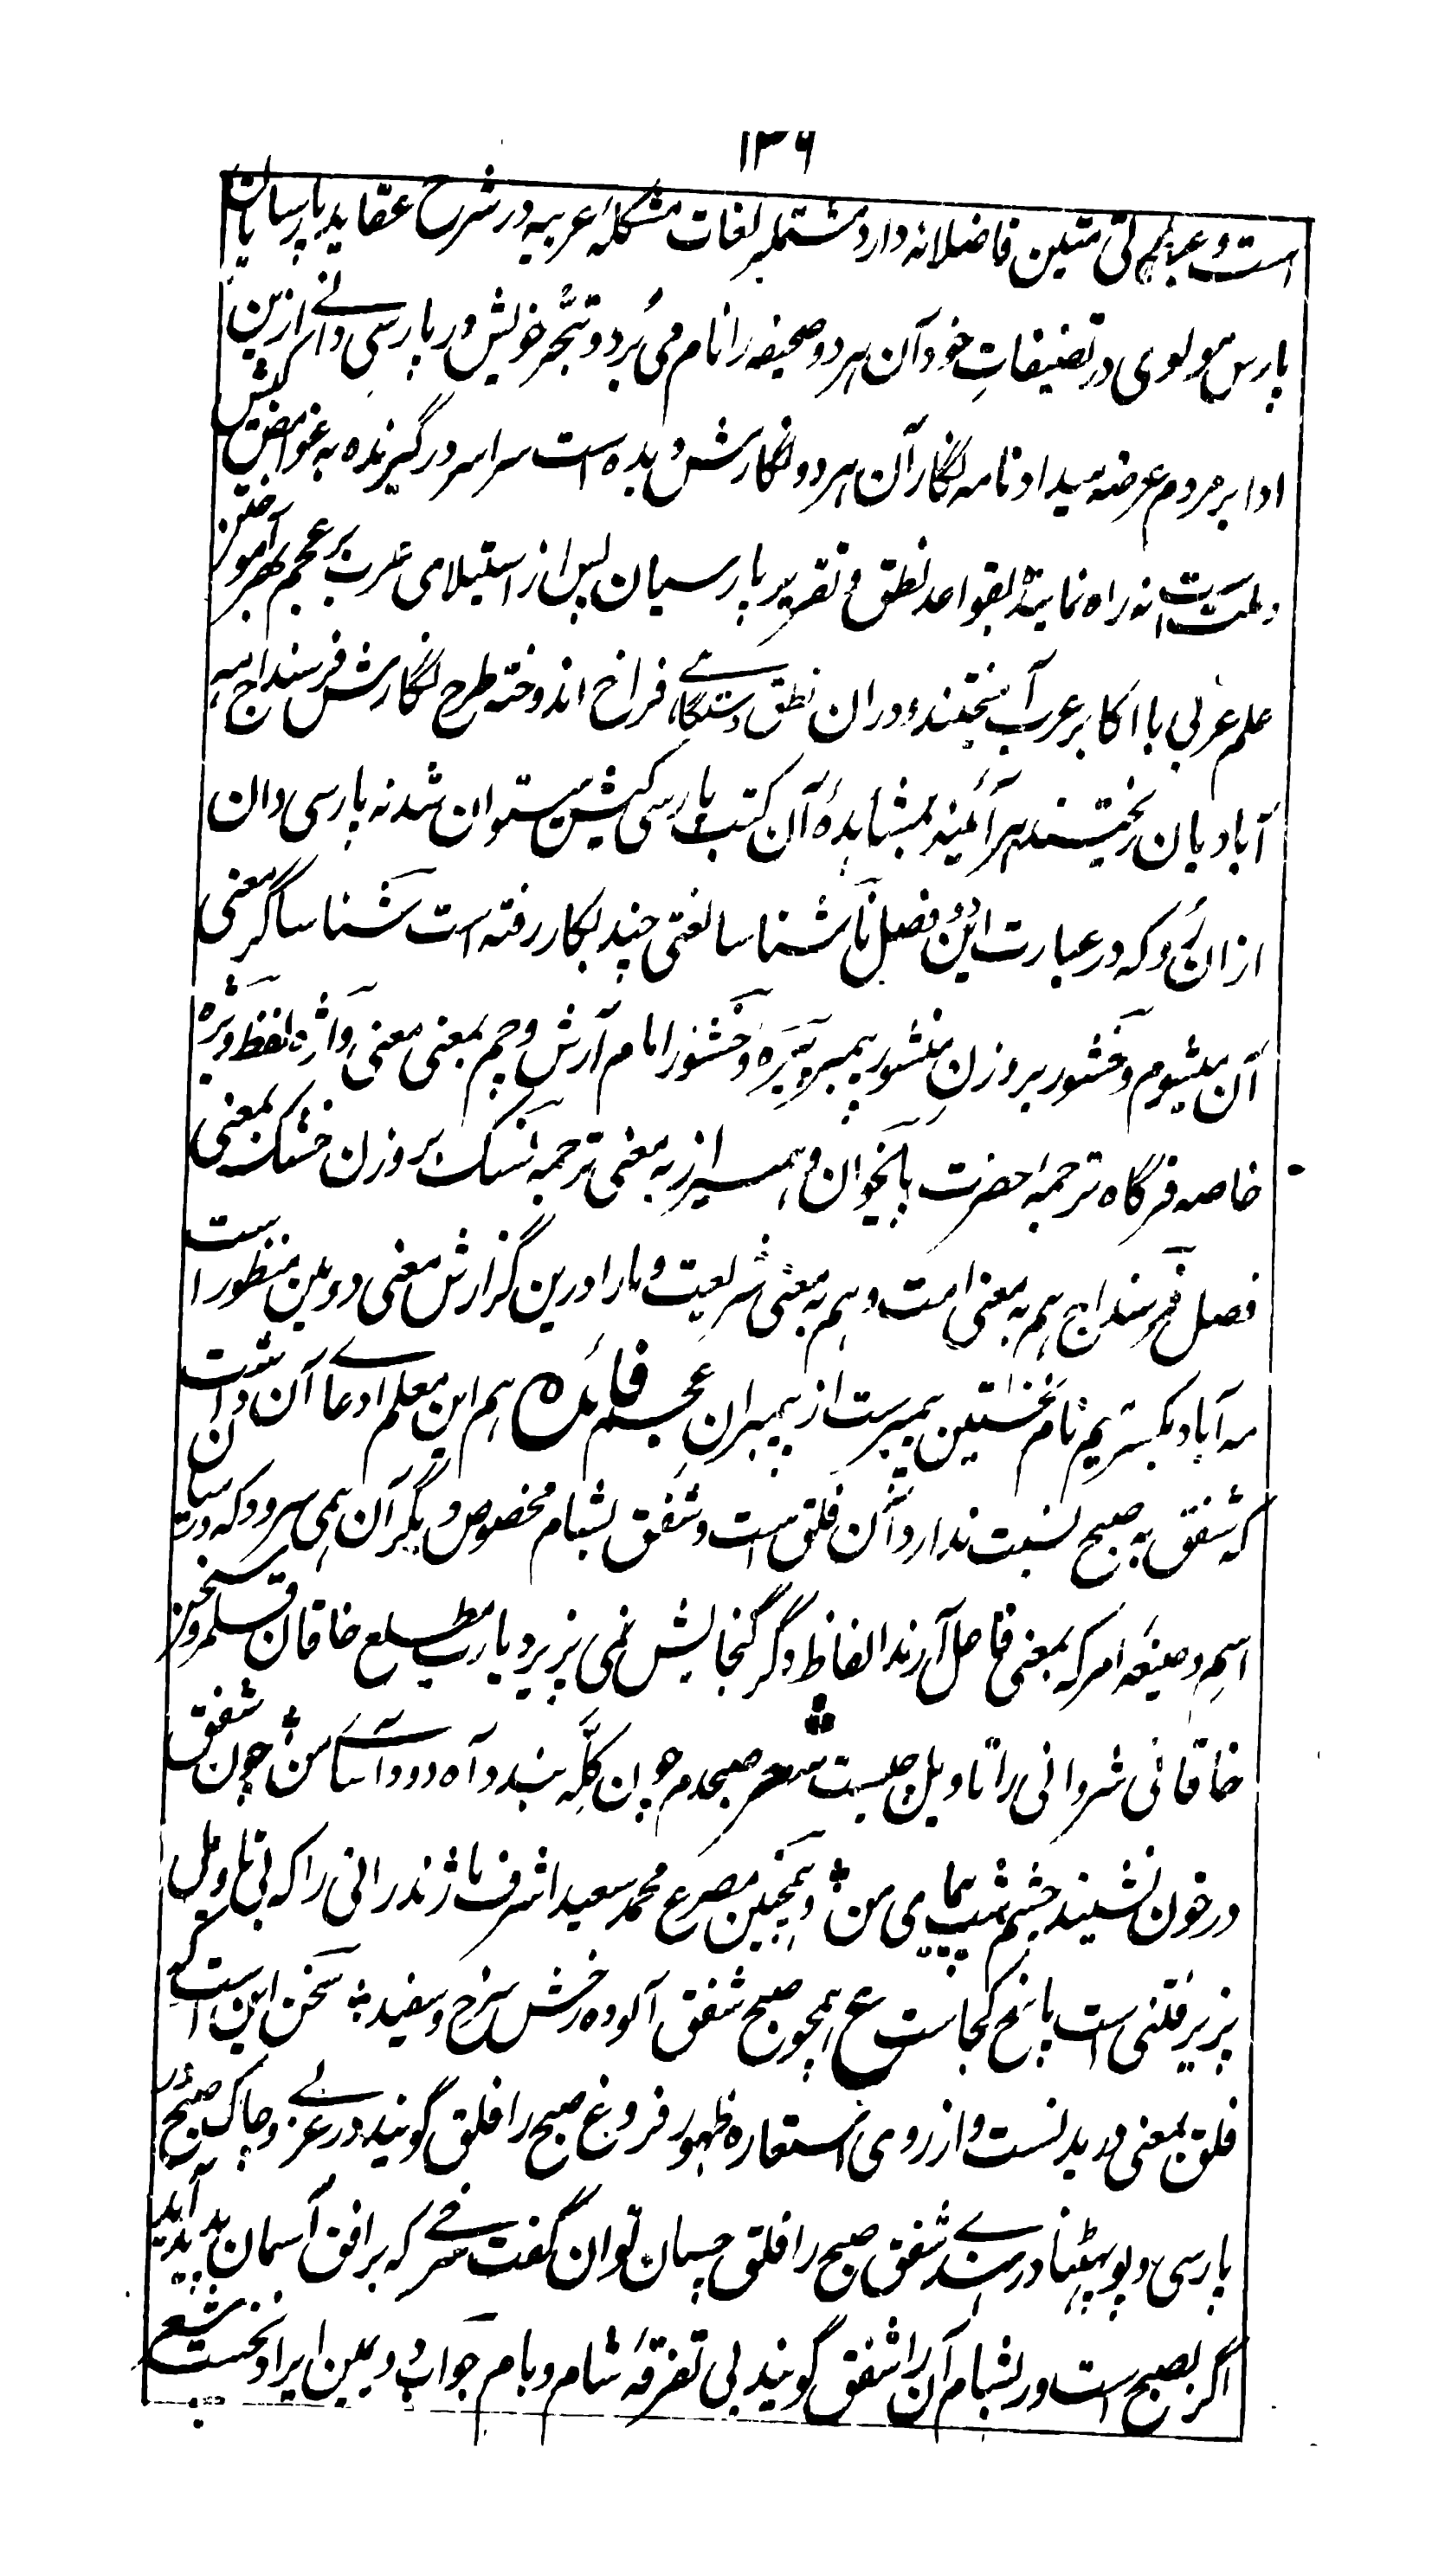 ۱۳۶
است و عبارتی متین فاضلانه دارد مشتملبر لغات مشکلهٔ عربیه در شرح عقاید پارسایان
پارس مولوی در تصنیفاتِ خود آن هر دو صحیفه را نام می بُرد و تبحّر خویش در پارسی دانے ازین
ادا بر مردم عرضه میداد نامه نگار آن هر دو نگارش دیده است سراسر در گیرنده به غوامض کیش
و ملت است نه راه نمایندهٔ بقواعد نطق و تقریر پارسیان پس از استیلای عرب بر عجم بهر آموختن
علم عربی با اکابر عرب آمیختند و دران نطق دستگاہے فراخ اندوخته طرح نگارش فرسنداج مه
آبادیان ریختند هر آئینه بمشاهدهٔ آن کتب پارسی کیش میتوان شد نه پارسی دان
ازان رُو که در عبارت این دو فصل نآشناسا لغتی چند بکار رفته است شناساگر معنی
آن میشوم وَخشور بر وزنِ منشور پیمبر تیره وخشور امام آرِش و چم بمعنی معنی واژه لفظ ویژه
خاصه فرگاه ترجمهٔ حضرت پایخوان و همیراز به معنی ترجمه نَسک بر وزن خشک بمعنی
فصل فرسنداج هم به معنی امت و هم به معنی شریعت و ما را درین گزارش معنی دویمن منظور است
مه آباد بکسر میم نام نخستین پیمبرست از پیمبران عجم فائده هم این معلم ادعاے آن داشت
که شفق به صبح نسبت ندارد آن فلق است و شفق بشام مخصوص دیگر آن همی سرود که درمیان
اسم و صیغهٔ امر که بمعنی فاعل آرند الفاظ دگر گنجایش نمی پزیرد یارب مطلع خاقان قلمرو سخن
خاقانی شروانی را تاویل چیست شعر صبحدم چون کِلّه بندد آه دود آساے من چون شفق
در خون نشیند چشم شب پیمای من و همچنین مصرع محمد سعید اشرف ماژندرانی را که بی تاویل
پزیرفتنی است پاسخ کجاست ع همچو صبح شفق آلوده رخش سرخ و سفید سخن این است که
فلق بمعنی دریدنست و از روی استعاره ظهور فروغ صبح را فلق گویند در عربے و چاک صبح در
پارسی و پو پهٹنا در هندے شفق صبح را فلق چسان توان گفت سرخے که بر افق آسمان پدید آید
اگر بصبح است ور بشام آن را شفق گویند بی تفرقهٔ شام و بام جواب دویمین ایراد نخست شعر